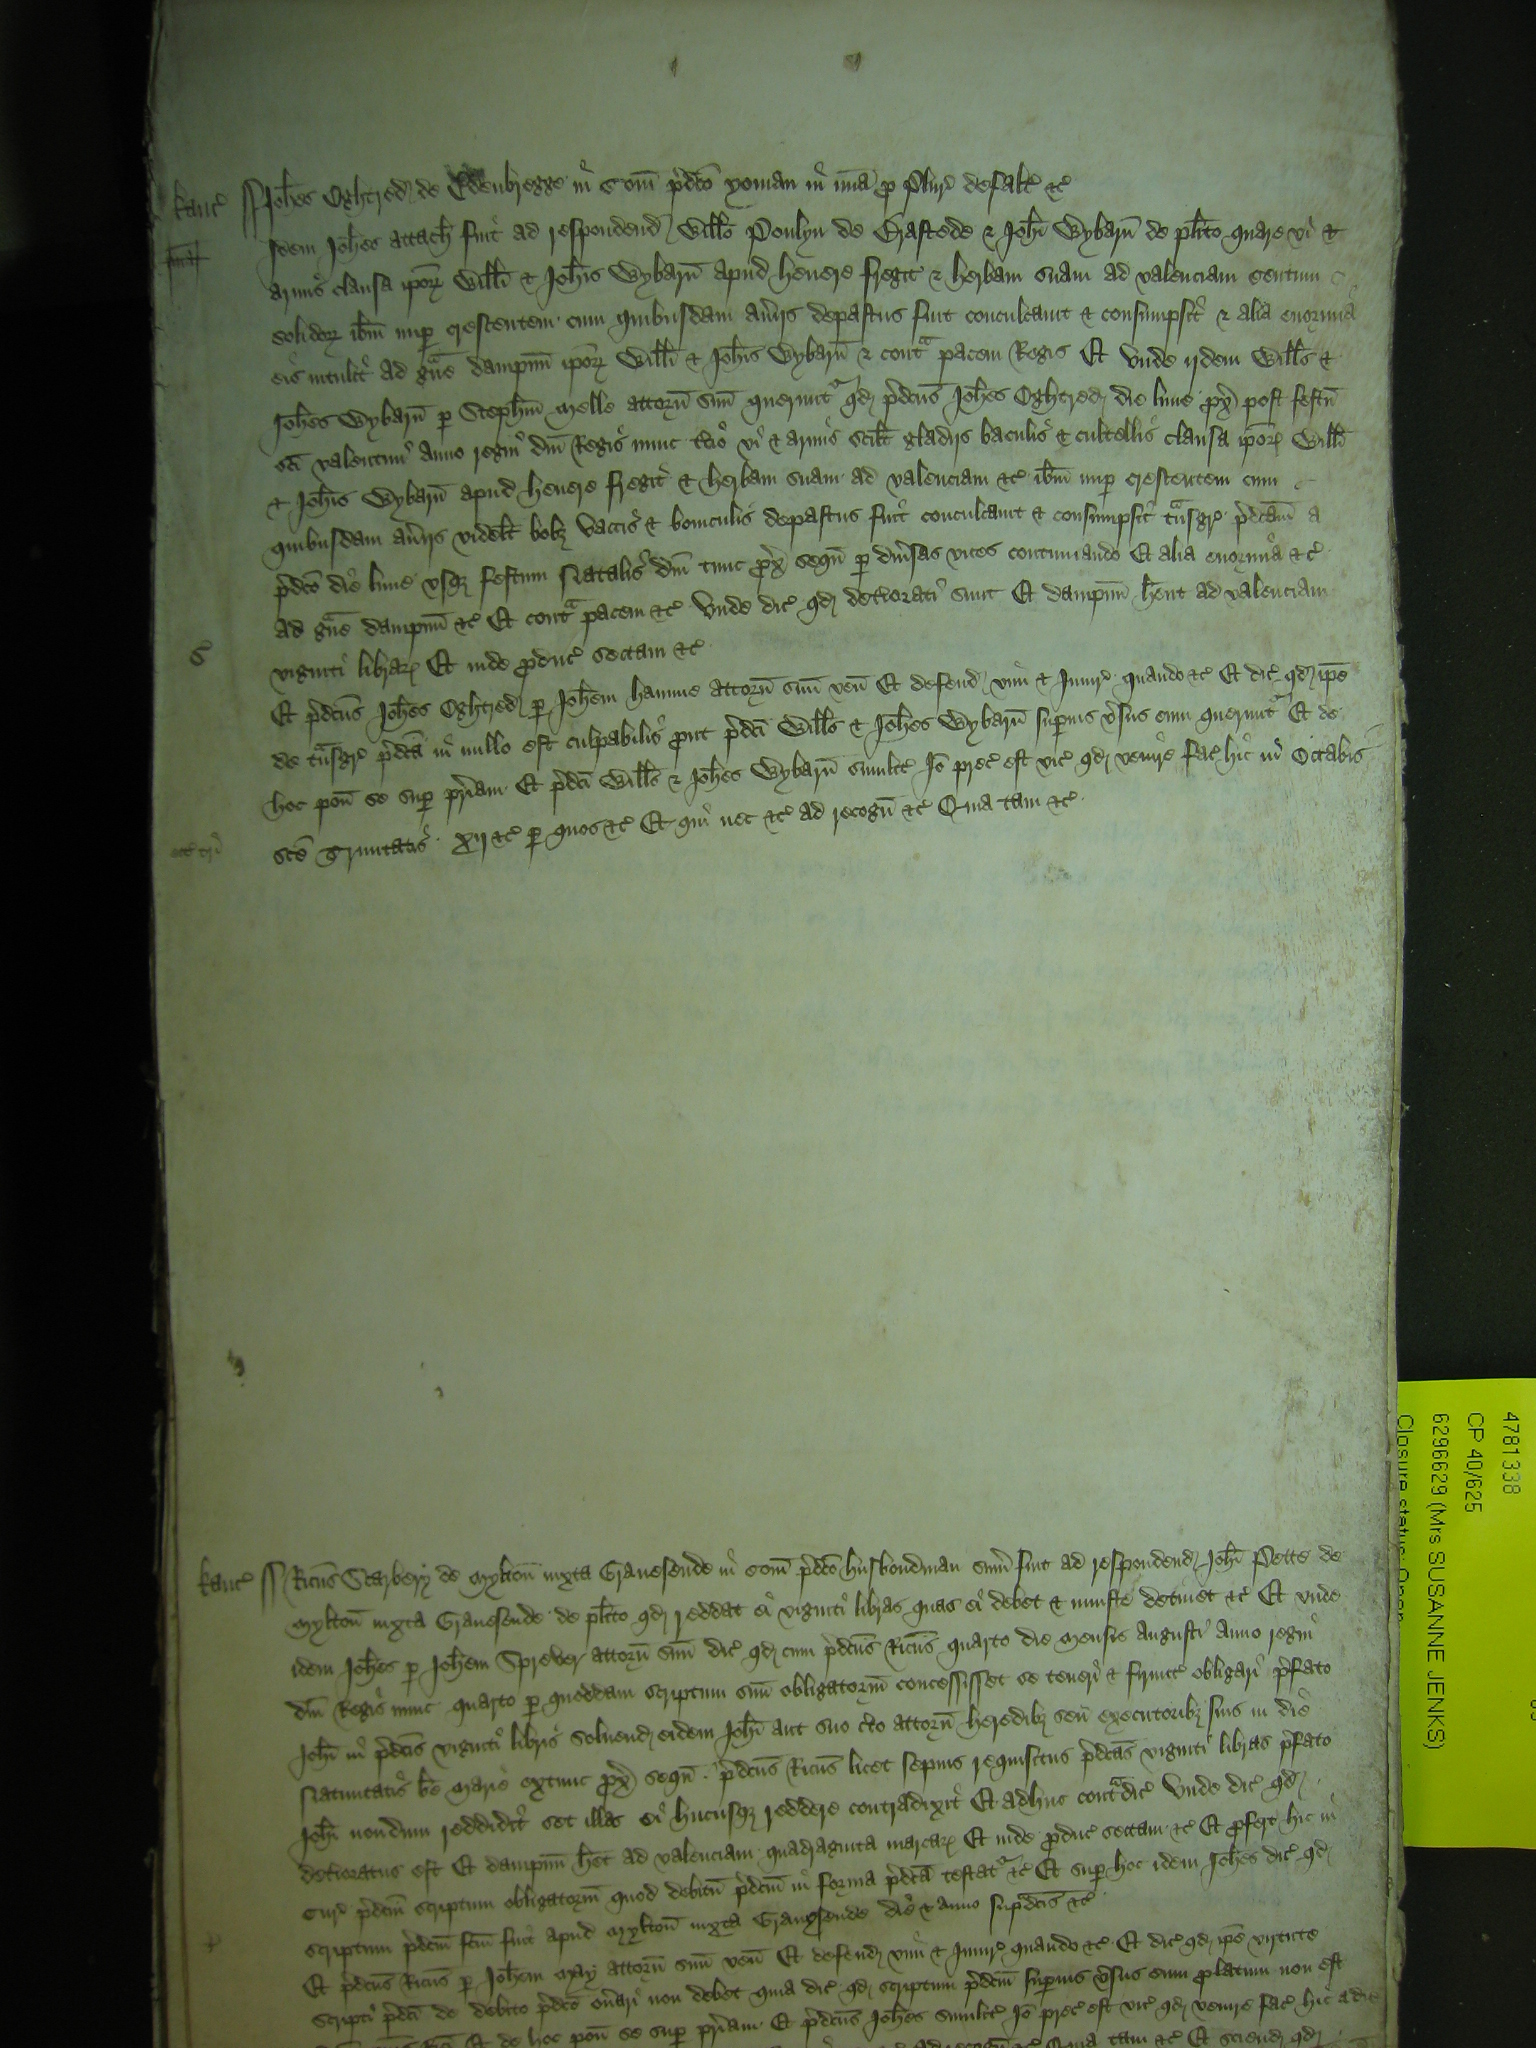 Kanc̉ Joh̄es Oghtred de Edenbregge in Com̄ p̄dc̄o yoman in m̄ia ꝓ plur̉ defalt̉ &c̉
Idem Joh̄es attach̄ fuit ad respondend̄ Will̄o Poulyn de Chastede & Joh̄i Wybarn̄ de pl̄ito quare vi &
armis clausa ip̄oꝝ Will̄i & Joh̄is Wybarn̄ apud henere fregit & herbam suam ad valenciam centum
solidoꝝ ib̄m nup̱ crescentem cum quibusdam av̄iis depastus fuit conculcauit & consumpsit & alia enormia
eis intulit ad gūe dampnū ip̄oꝝ Will̄i & Joh̄is Wybarn̄ & contᵃ pacem Regis Et vnde ijdem Will̄s &
Joh̄es Wybarn̄ p̱ Steph̄m Melle attorn̄ suū querunt̉ qd̄ p̄dc̄us Joh̄es Oghtred die lune px̄ post festū
sc̄i valentini anno regni dn̄i Regis nunc vi & armis scilt̉ gladijs baculis & cultellis clausa ip̄oꝝ Will̄i
& Joh̄is Wybarn̄ apud henere fregit & herbam suam ad valenciam &c̉ ib̄m nup̱ crescentem cum
quibusdam av̄iis videlt̉ bobꝫ vaccis & boniculis depastus fuit conculcauit & consumpsit tᵃnsgr̉ p̄dc̄am a
p̄dc̄o die lune vsqꝫ festum Natalis dn̄i tunc px̄ sequn̄ p̱ diủsas vices continuando Et alia enormia &c̉
ad gūe dampnū &c̉ Et contᵃ pacem &c̉ Vnde dic̉ qd̄ det̉iorati sunt Et dampnū h̄ent ad valenciam
viginti libraꝝ Et inde ꝓduc̉ sectam &c̉
Et p̄dc̄us Joh̄es Oghtred p̱ Joh̄em hamme attorn̄ suū ven̄ Et defend̄ vim & Iniur̉ quando &c̉ Et dic̉ qd̄ ip̄e
de tᵃnsgr̉ p̄dc̄a in nullo est culpabilis ꝓut p̄dc̄i Will̄s & Joh̄es Wybarn̄ sup̱ius v̉sus eum querunt̉ Et de
hoc pon̄ se sup̱ p̄riam Et p̄dc̄i Will̄s & Joh̄es Wybarn̄ similit̉ Iō prec̉ est vic̉ qd̄ venire fac̉ hic in Octabis
sc̄e Trinitatis xij &c̉ p̱ quos &c̉ Et qui nec &c̉ ad recogn̄ &c̉ Quia tam &c̉
Kanc̉ Ric̄us Scarbery de Mylton̄ iuxta Grauesende in Com̄ p̄dc̄o husbondman sum̄ fuit ad respondend̄ Joh̄i Pette de
Mylton̄ iuxta Grauesende de pl̄ito qd̄ reddat ei viginti libras quas ei debet & iniuste detinet &c̉ Et vnde
idem Joh̄es p̱ Joh̄em Sprever attorn̄ suū dic̉ qd̄ cum p̄dc̄us Ric̄us quarto die mensis Augusti anno regni
dn̄i Regis nunc quarto p̱ quoddam scriptum suū obligatoriū concessisset se teneri & firmit̉ obligari p̄fato
Joh̄i in p̄dc̄is viginti libris soluend̄ eidem Joh̄i aut suo c̉to attorn̄ heredibꝫ seu executoribꝫ suis in die
Natiuitatis b̄e Marie extunc px̄ sequn̄ p̄dc̄us Ric̄us licet sepius requisitus p̄dc̄as viginti libras p̄fato
Joh̄i nondum reddidit set illas ei hucusqꝫ reddere contradixit Et adhuc contᵃdic̉ Vnde dic̉ qd̄
det̉ioratus est Et dampnū h̄et ad valenciam quadraginta marcaꝝ Et inde ꝓduc̉ sectam &c̉ Et ꝓfert hic in
Cur̉ p̄dc̄m scriptum obligatoriū quod debitū p̄dc̄m in forma p̄dc̄a testat̉ &c̉ Et sup̱ hoc idem Joh̄es dic̉ qd̄
scriptum p̄dc̄m fc̄m fuit apud Mylton̄ iuxta Grauesende die & anno sup̱dc̄is &c̉
Et p̄dc̄us Ric̄us p̱ Joh̄em May attorn̄ suū ven̄ Et defend̄ vim & Iniur̉ quando &c̉ Et dic̉ qd̄ ip̄e virtute
scripti p̄dc̄i de debito p̄dc̄o on̉ari non debet quia dic̉ qd̄ scriptum p̄dc̄m sup̱ius v̉sus eum ꝓlatum non est
Et de hoc pon̄ se sup̱ p̄riam Et p̄dc̄us Joh̄es similit̉ Iō prec̉ est vic̉ qd̄ venire fac̉ hic a die
Quia tam &c̉ Et sciend̄ qd̄
4781338
CP 40/625
6296629 (Mrs SUSANNE JENKS)
Closure status: Open